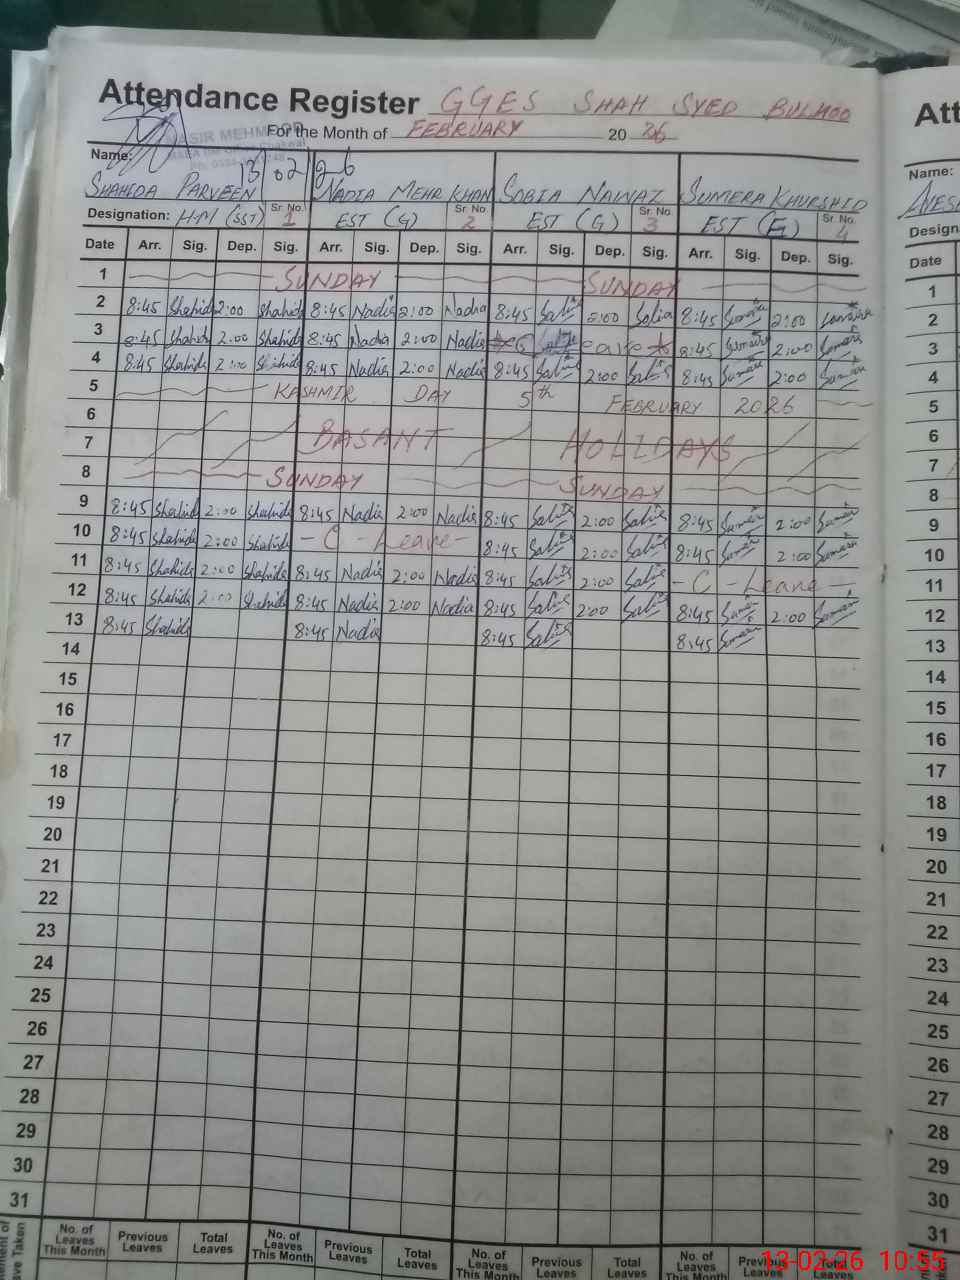 Attendance Register GGES SHAH SYED BULHOO
For the Month of FEBRUARY 20 26
NASIR MEHMOOD
13/02/26
Name: SHAHIDA PARVEEN NADIA MEHR KHAN SOBIA NAWAZ SUMERA KHURSHID
Designation: H.M (SST) Sr. No. 1 EST (G) Sr. No. 2 EST (G) Sr. No. 3 EST (E) Sr. No. 4
Date Arr. Sig. Dep. Sig. Arr. Sig. Dep. Sig. Arr. Sig. Dep. Sig. Arr. Sig. Dep. Sig.
1 SUNDAY SUNDAY
2 8:45 Shahida 2:00 Shahida 8:45 Nadia 2:00 Nadia 8:45 2:00 8:45 2:00
3 8:45 Shahida 2:00 Shahida 8:45 Nadia 2:00 Nadia C Leave 8:45 2:00
4 8:45 Shahida 2:00 Shahida 8:45 Nadia 2:00 Nadia 8:45 2:00 8:45 2:00
5 KASHMIR DAY 5th FEBRUARY 2026
6
7 BASANT HOLIDAYS
8 SUNDAY SUNDAY
9 8:45 Shahida 2:00 Shahida 8:45 Nadia 2:00 Nadia 8:45 2:00 8:45 2:00
10 8:45 Shahida 2:00 Shahida - C - Leave - 8:45 2:00 8:45 2:00
11 8:45 Shahida 2:00 Shahida 8:45 Nadia 2:00 Nadia 8:45 2:00 - C - Leave -
12 8:45 Shahida 2:00 Shahida 8:45 Nadia 2:00 Nadia 8:45 2:00 8:45 2:00
13 8:45 Shahida 8:45 Nadia 8:45 8:45
14
15
16
17
18
19
20
21
22
23
24
25
26
27
28
29
30
31
No. of Leaves This Month Previous Leaves Total Leaves No. of Leaves This Month Previous Leaves Total Leaves No. of Leaves This Month Previous Leaves Total Leaves No. of Leaves This Month Previous Leaves
Att
Name:
Design
Date
1
2
3
4
5
6
7
8
9
10
11
12
13
14
15
16
17
18
19
20
21
22
23
24
25
26
27
28
29
30
31
13-02-26 10:55